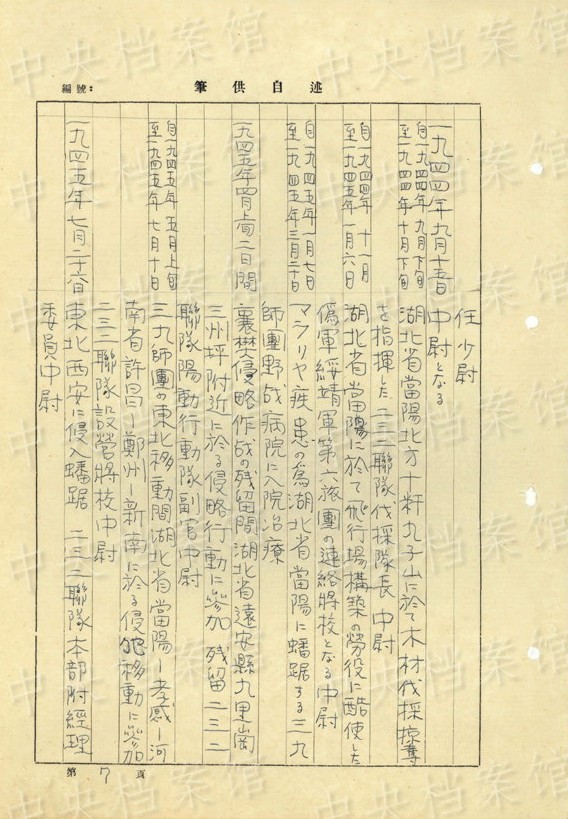 筆供自述
編號:
任少尉
一九四四年九月十五日 中尉となる
自一九四四年九月下旬
至一九四四年十月下旬
湖北省當陽北方十粁九子山に於て木材伐採掠奪
を指揮した二三二聯隊伐採隊長 中尉
自一九四四年十一月
至一九四五年一月六日
湖北省當陽に於て飛行場構築の労役に酷使した
偽軍綏靖軍第六旅團の連絡將校となる中尉
自一九四五年一月七日
至一九四五年三月二十日
マラリヤ疾患の為湖北省當陽に蟠踞する三九
師團野战病院に入院治療
一九四五年四月上旬二日間
襄樊侵略作战の残留間湖北省遠安縣九里崗
三州坪附近に於る侵略行動に參加 残留二三二
聯隊陽動行動隊副官中尉
自一九四五年五月上旬
至一九四五年七月十日
三九師團の東北移動間湖北省當陽—孝感—河
南省許昌—鄭州—新南に於る侵犯移動に參加
二三二聯隊設營將校中尉
一九四五年七月二十六日
東北西安に侵入蟠踞 二三二聯隊本部附經理
委員中尉
第 7 頁
中央档案馆